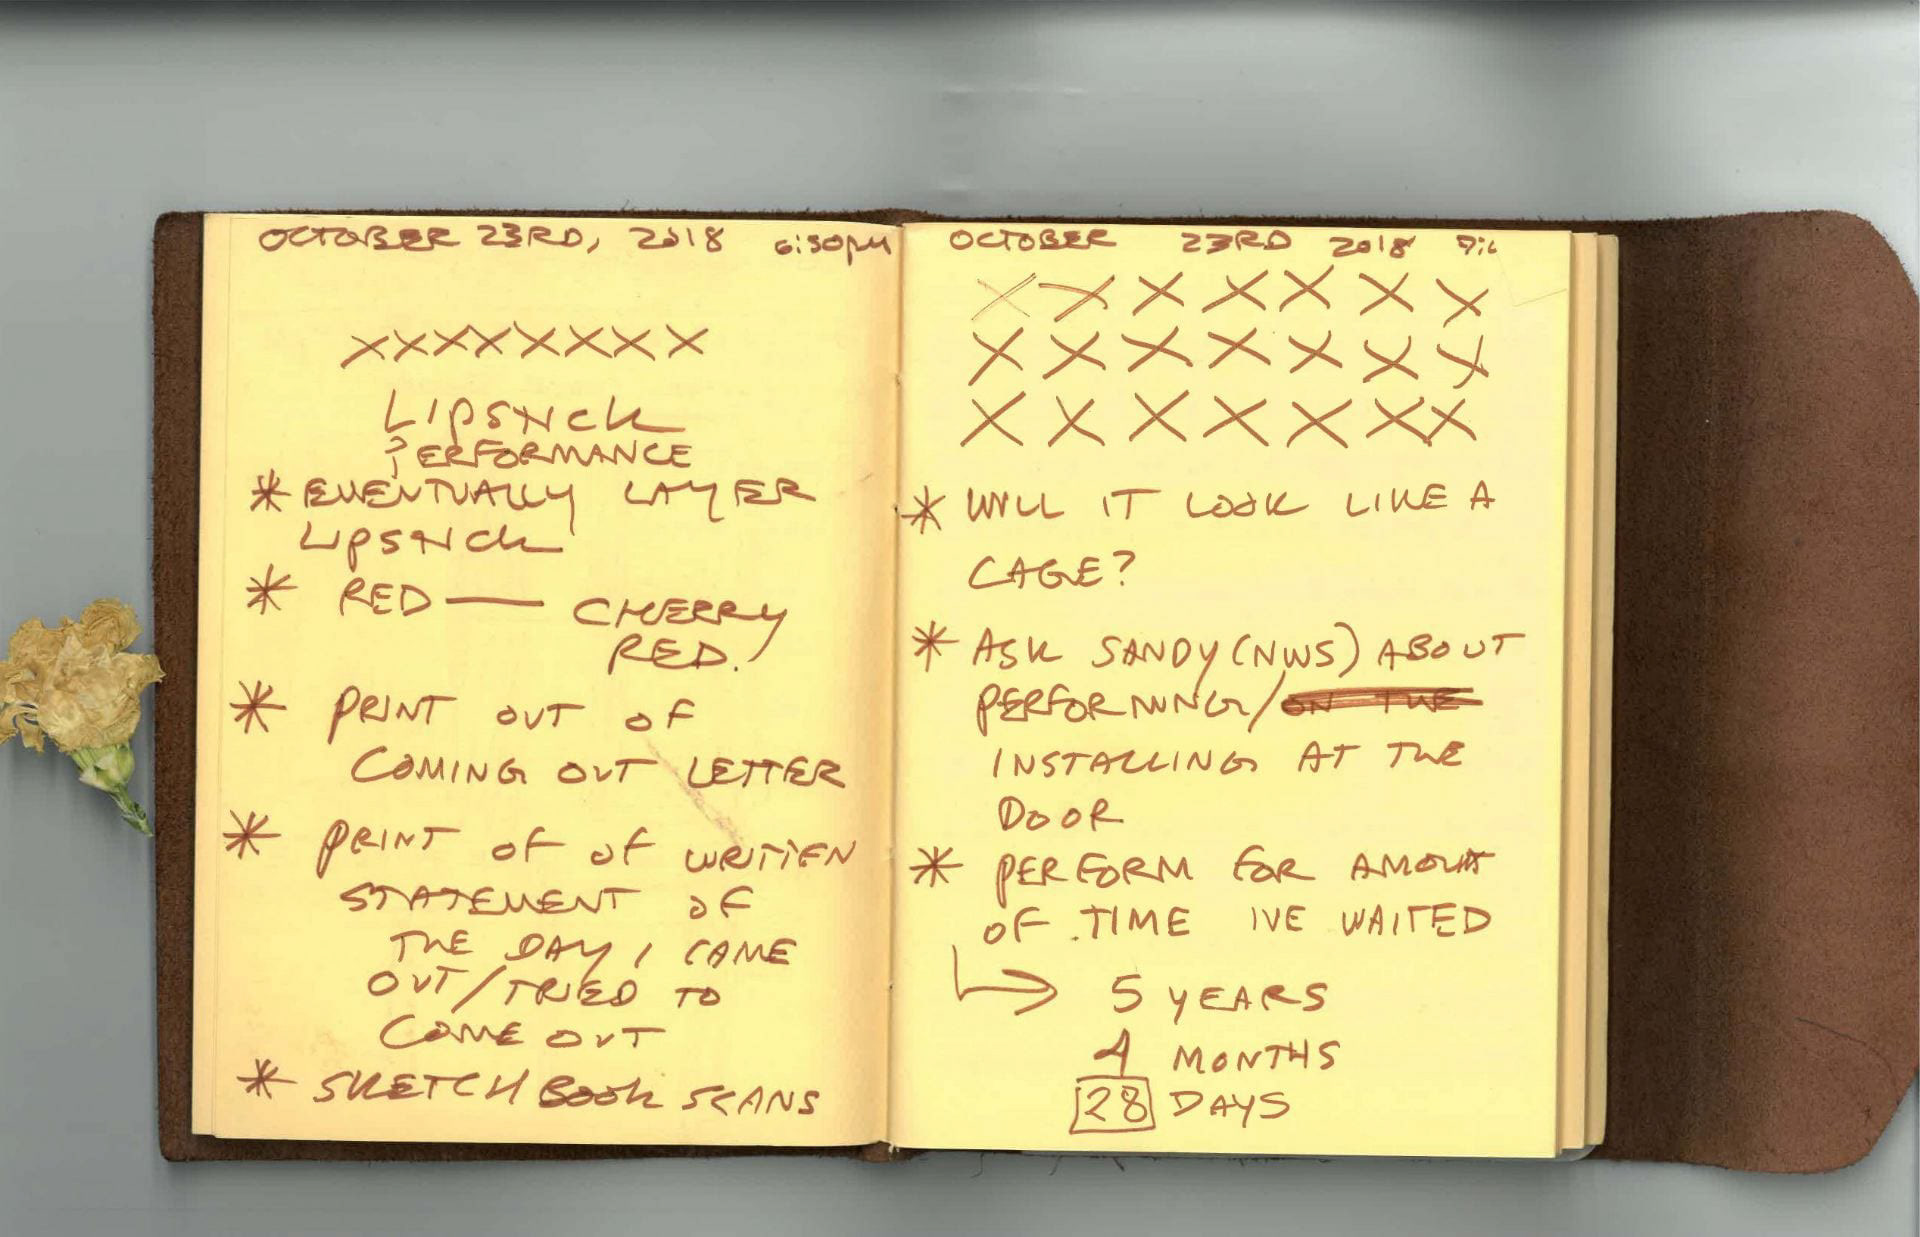 OCTOBER 23RD, 2018 6:30pm
XXXXXXXX
LIPSTICK
PERFORMANCE
* EVENTUALLY LAYER
LIPSTICK
* RED — CHERRY
RED.
* PRINT OUT OF
COMING OUT LETTER
* PRINT OF OF WRITTEN
STATEMENT OF
THE DAY I CAME
OUT/TRIED TO
COME OUT
* SKETCHBOOK SCANS
OCTOBER 23RD 2018
X X X X X X X
X X X X X X X
X X X X X X X
* WILL IT LOOK LIKE A
CAGE?
* ASK SANDY (NWS) ABOUT
PERFORMING/ON THE
INSTALLING AT THE
DOOR
* PERFORM FOR AMOUNT
OF TIME IVE WAITED
→ 5 YEARS
4 MONTHS
28 DAYS